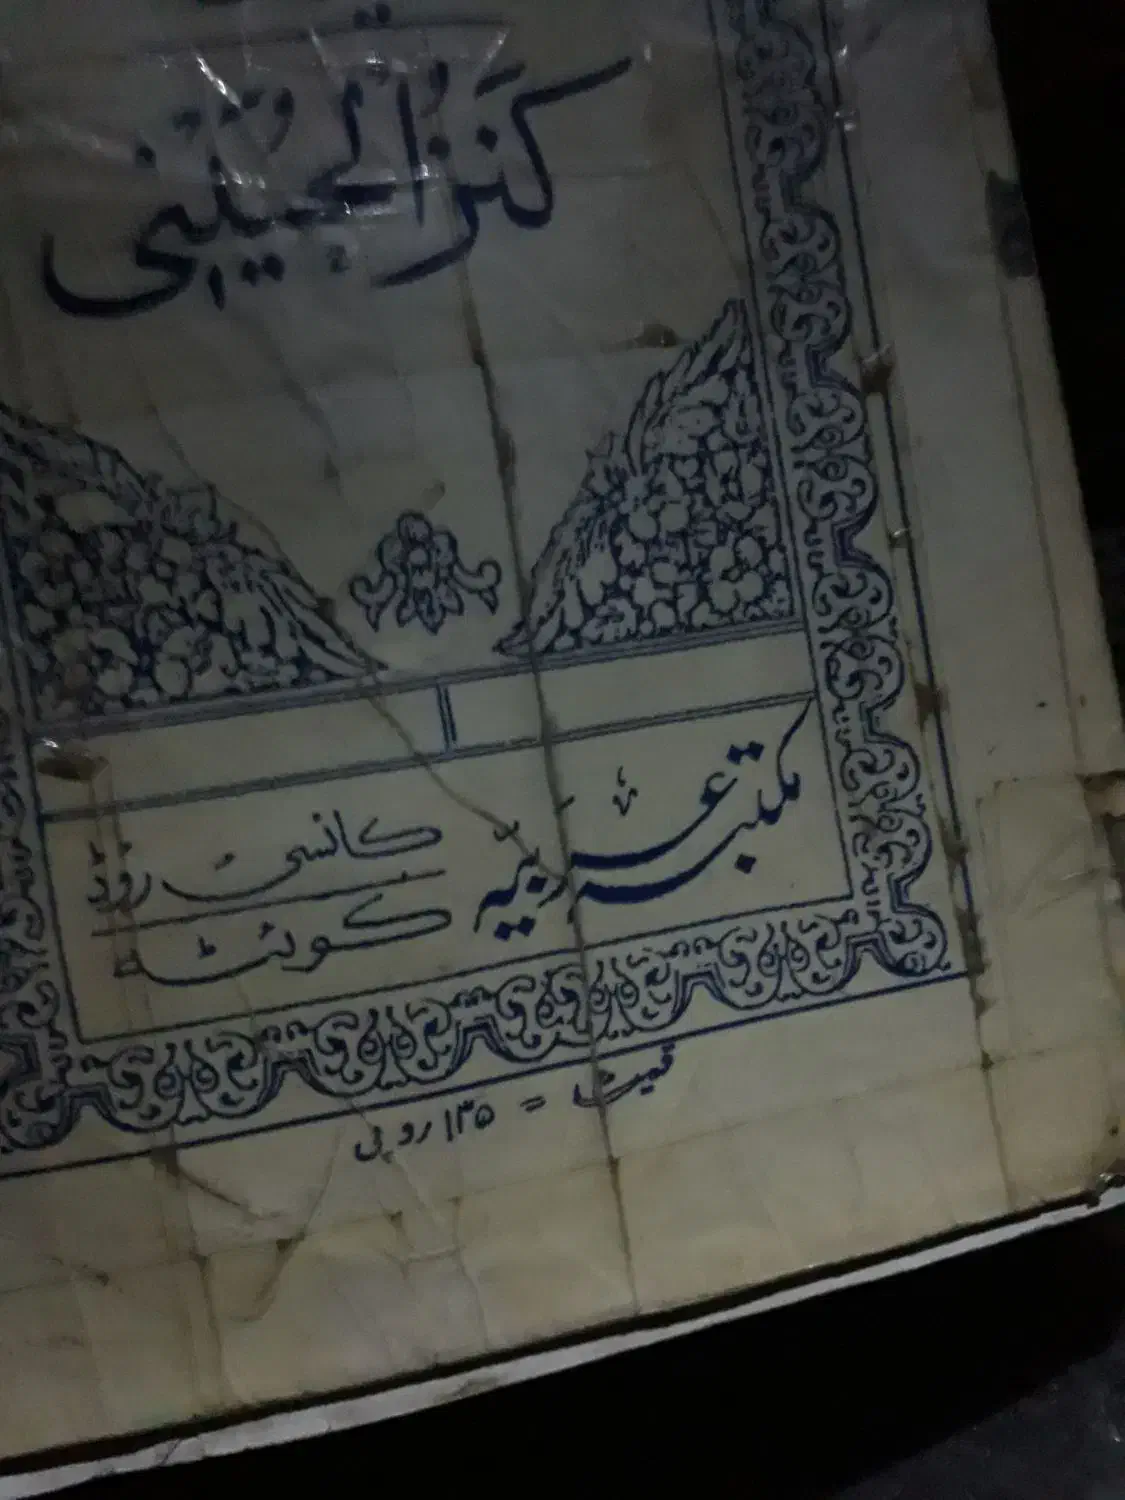 کنز الحسینی
مکتبہ عربیّہ
کانسی روڈ
کوئٹہ
قیمت = ۱۳۵ روپی